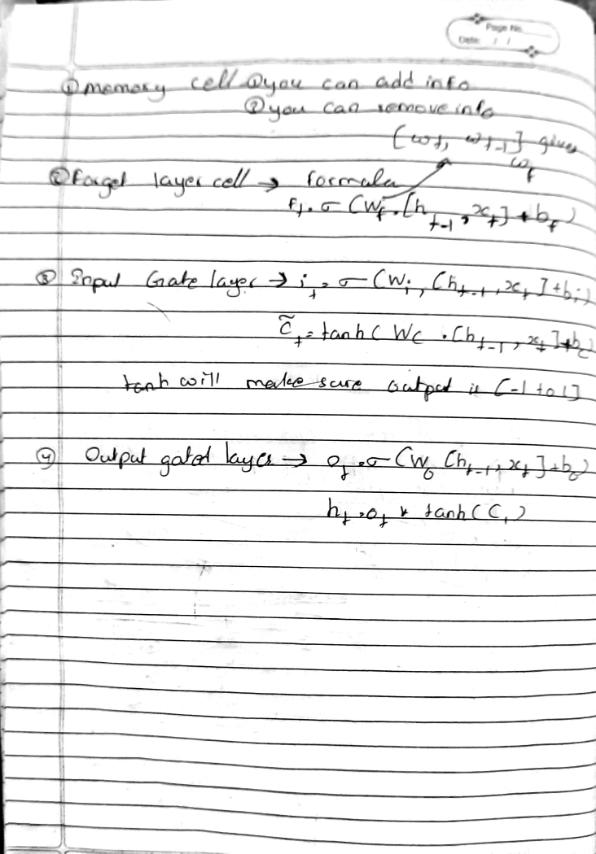 Page No.
Date: / /
① memory cell ① you can add info
② you can remove info
[wf, wt-1] gives wf
② Forget layer cell → formula
Ft = σ (Wf . [ht-1, xt] + bf)
③ Input Gate layer → it = σ (Wi, [ht-1, xt] + bi)
C̃t = tanh ( Wc . [ht-1, xt] + bc)
tanh will make sure output is [-1 to 1]
④ Output gated layer → ot = σ (Wo [ht-1, xt] + bo)
ht = ot * tanh (Ct)